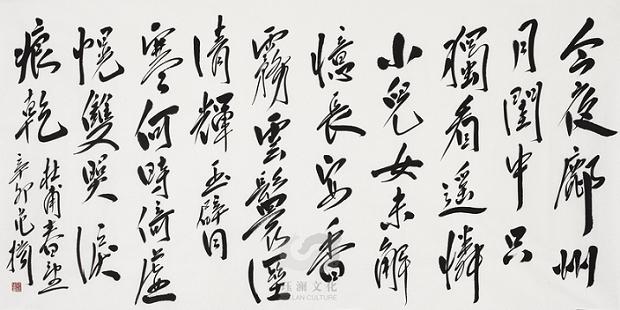 今夜鄜州
月閨中只
獨看遥憐
小兒女未解
憶長安香
霧雲鬟溼
清輝玉臂
寒何時倚虚
幌雙照淚
痕乾
杜甫春望
辛卯范
澜文化
LAN CULTURE